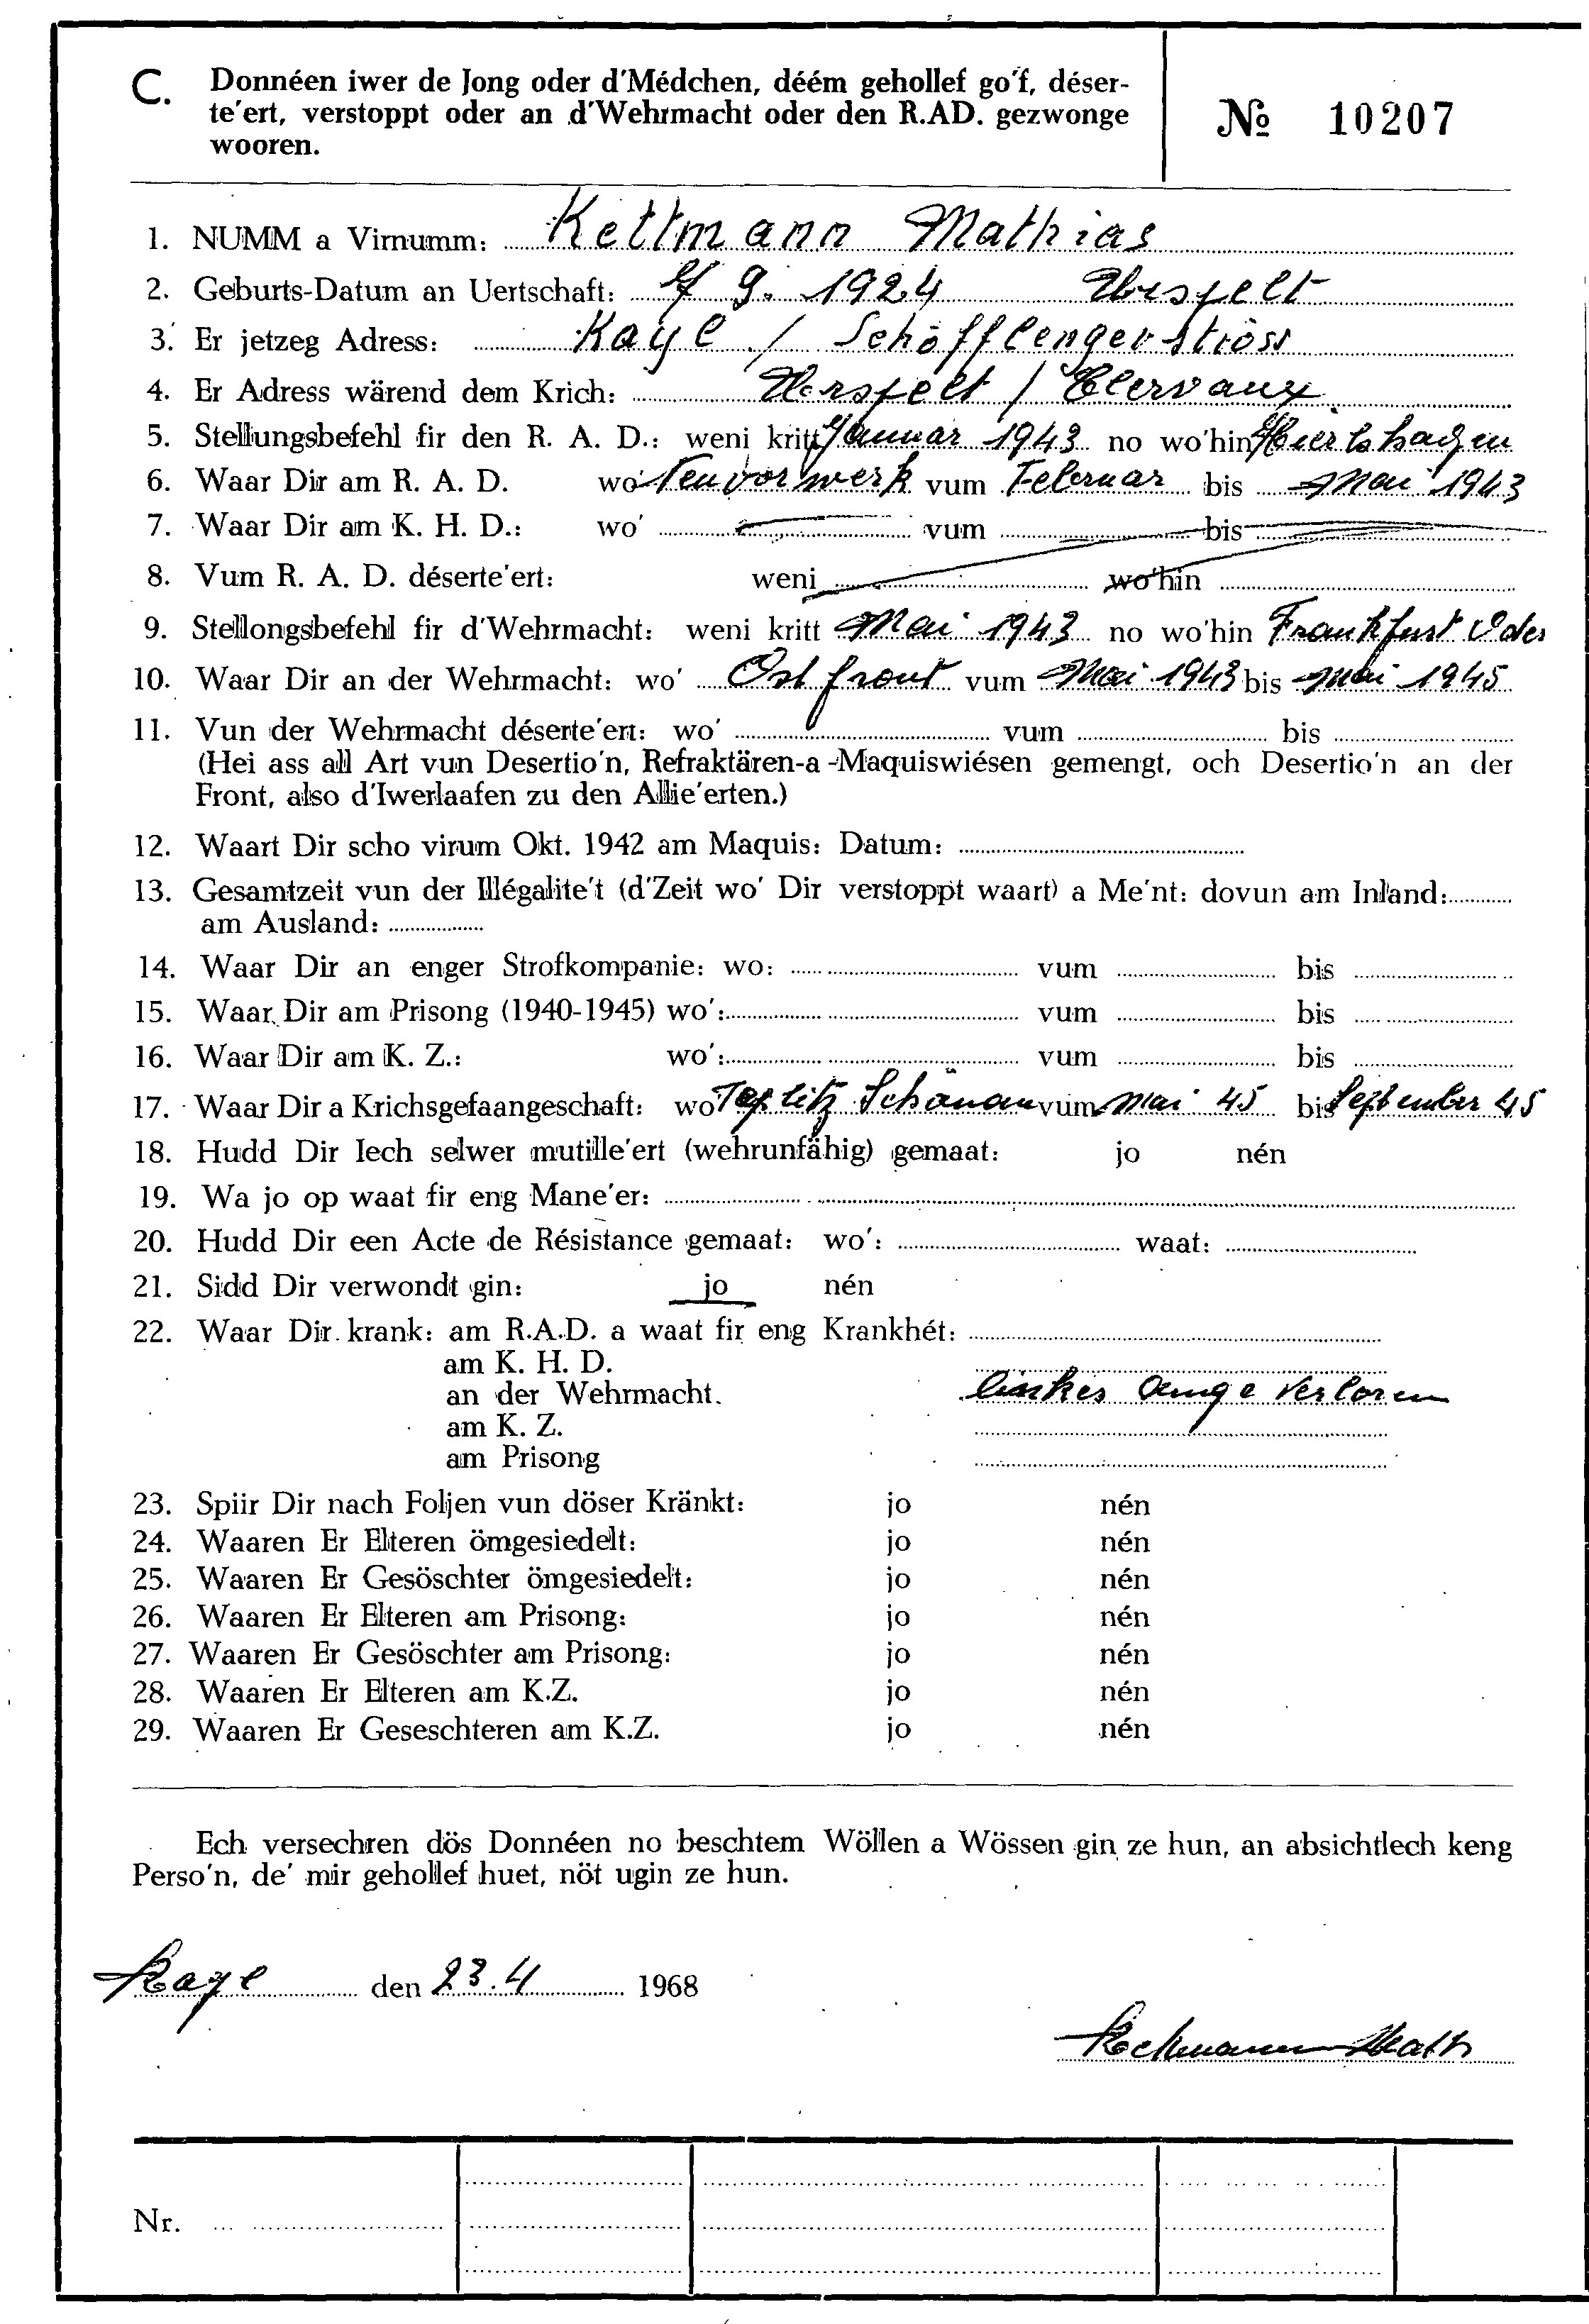 C. Donnéen iwer de Jong oder d'Médchen, déém gehollef go'f, déser-
te'ert, verstoppt oder an d'Wehrmacht oder den R.AD. gezwonge
wooren.
№ 10207
1. NUMM a Virnumm: Kettmann Mathias
2. Geburts-Datum an Uertschaft: 9. 1924
3. Er jetzeg Adress: Kayl / Schöfflengerströss
4. Er Adress wärend dem Krich: / Clervaux
5. Stellungsbefehl fir den R. A. D.: weni kritt Januar 1943 no wo'hin
6. Waar Dir am R. A. D. wo' Neuvorwerk vum Februar bis Mai 1943
7. Waar Dir am K. H. D.: wo' vum bis
8. Vum R. A. D. déserte'ert: weni wo'hin
9. Stellongsbefehl fir d'Wehrmacht: weni kritt Mai 1943 no wo'hin Frankfurt Oder
10. Waar Dir an der Wehrmacht: wo' Ostfront vum Mai 1943 bis Mai 1945
11. Vun der Wehrmacht déserte'ert: wo' vum bis
(Hei ass all Art vun Desertio'n, Refraktären-a -Maquiswiésen gemengt, och Desertio'n an der
Front, also d'Iwerlaafen zu den Allie'erten.)
12. Waart Dir scho virum Okt. 1942 am Maquis: Datum:
13. Gesamtzeit vun der Illégalite't (d'Zeit wo' Dir verstoppt waart) a Me'nt: dovun am Inland:
am Ausland:
14. Waar Dir an enger Strofkompanie: wo: vum bis
15. Waar Dir am Prisong (1940-1945) wo': vum bis
16. Waar Dir am K. Z.: wo': vum bis
17. Waar Dir a Krichsgefaangeschaft: wo' Teplitz Schönau vum Mai 45 bis September 45
18. Hudd Dir Iech selwer mutille'ert (wehrunfähig) gemaat: jo nén
19. Wa jo op waat fir eng Mane'er:
20. Hudd Dir een Acte de Résistance gemaat: wo': waat:
21. Sidd Dir verwondt gin: jo nén
22. Waar Dir krank: am R.A.D. a waat fir eng Krankhét:
am K. H. D.
an der Wehrmacht. linkes Auge verloren
am K. Z.
am Prisong
23. Spiir Dir nach Foljen vun döser Kränkt: jo nén
24. Waaren Er Elteren ömgesiedelt: jo nén
25. Waaren Er Gesöschter ömgesiedelt: jo nén
26. Waaren Er Elteren am Prisong: jo nén
27. Waaren Er Gesöschter am Prisong: jo nén
28. Waaren Er Elteren am K.Z. jo nén
29. Waaren Er Geseschteren am K.Z. jo nén
Ech versechren dös Donnéen no beschtem Wöllen a Wössen gin ze hun, an absichtlech keng
Perso'n, de' mir gehollef huet, nöt ugin ze hun.
Kayl den 23.4 1968
Kettmann Math
Nr.